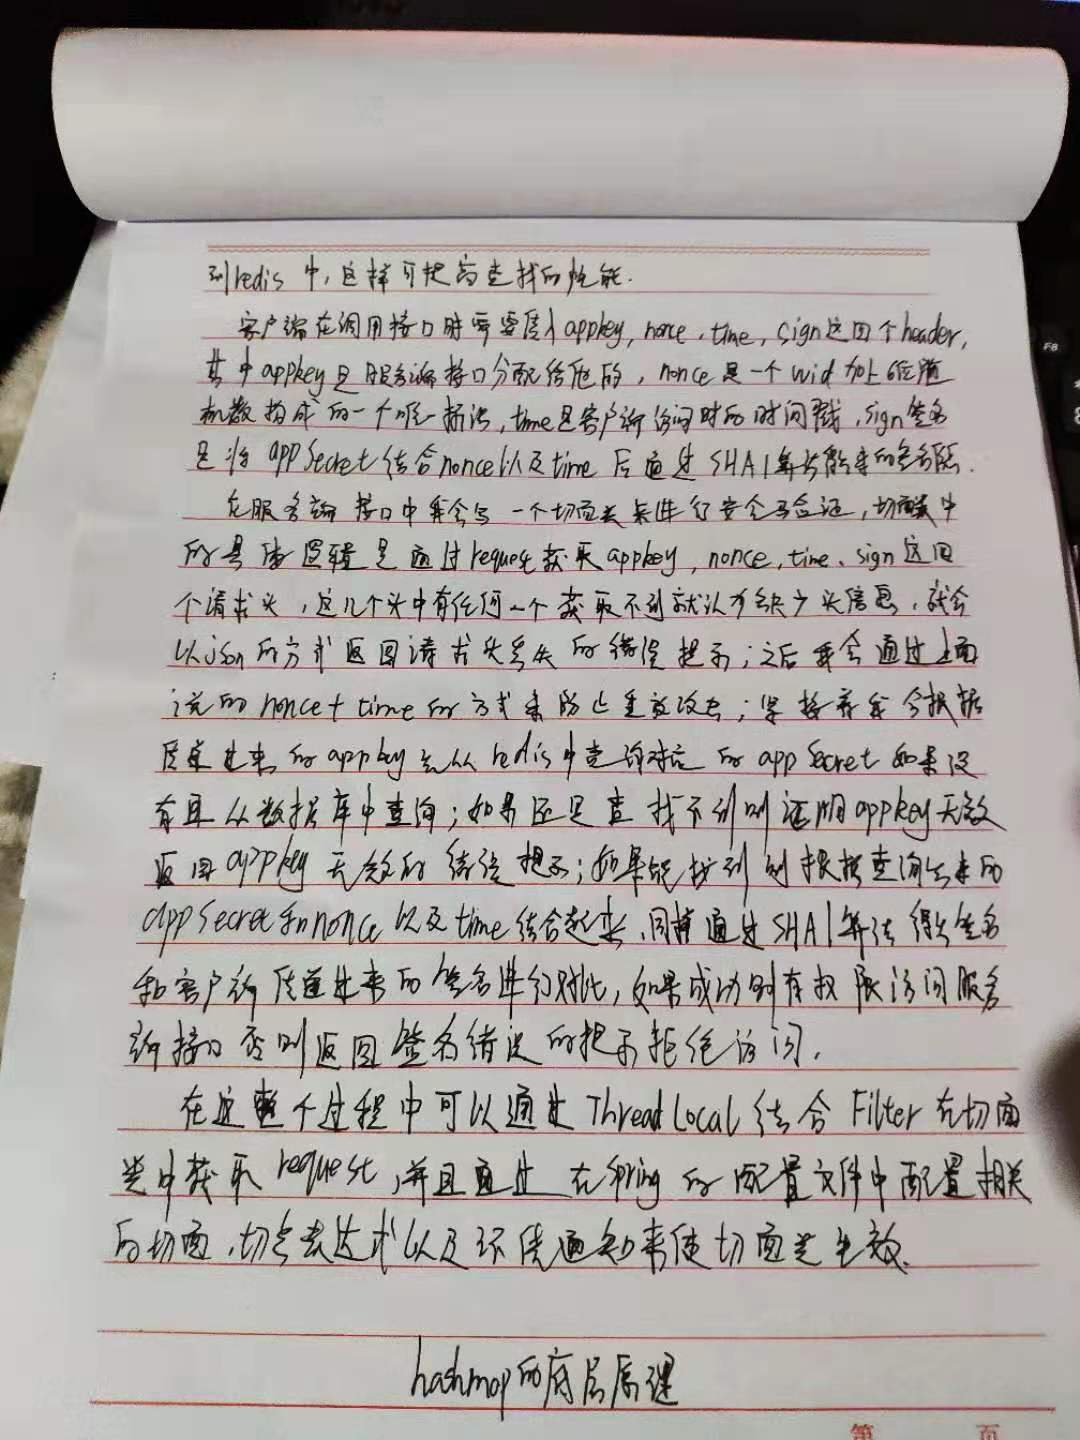 到redis中,这样可提高查找的性能.
客户端在调用接口时需要传入appkey, nonce, time, sign这四个header,
其中appkey是服务端接口分配给他的, nonce是一个uuid加上6位随
机数构成的一个唯一标识, time是客户端访问时的时间戳, sign签名
是将appSecret结合nonce以及time后通过SHA1算法
在服务端接口中我会写一个切面类来进行安全验证, 切面类中
的具体逻辑是通过request获取appkey, nonce, time, sign这四
个请求头, 这几个头中有任何一个获取不到就认为缺少头信息, 就会
以json的方式返回请求头丢失的错误提示; 之后我会通过上面
说的nonce+time的方式来防止重放攻击; 紧接着我会根据
传递进来的appkey去从redis中查询对应的appSecret如果没
有且从数据库中查询; 如果还是查找不到则证明appkey无效
返回appkey无效的错误提示; 如果能找到则根据查询出来的
appSecret和nonce以及time结合起来, 同样通过SHA1算法得出签名
和客户端传递进来的签名进行对比, 如果成功则有权限访问服务
端接口否则返回签名错误的提示拒绝访问.
在这整个过程中可以通过ThreadLocal结合Filter在切面
类中获取request, 并且通过在spring的配置文件中配置相关
的切面, 切点表达式以及环绕通知来使切面类生效.
hashmap的底层原理
第 页